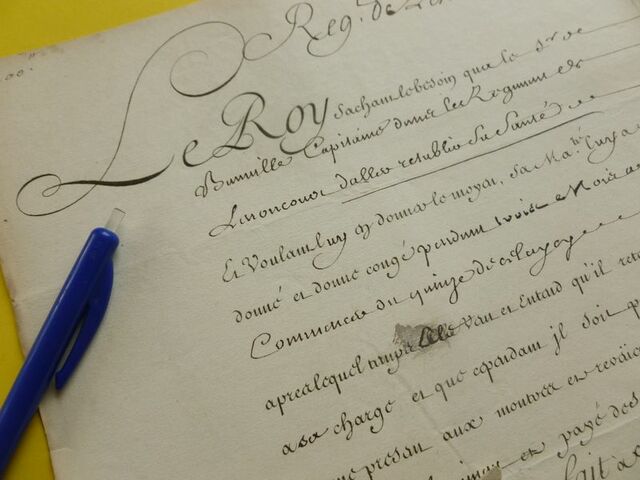 Reg.t de
Le Roy sachant le besoin que le S.r de
Capitaine dans le Regiment de
d'aller retablir sa Santé
Et Voulant luy en donner le moyen, Sa Ma.té luy a
donné et donne congé pendant trois Mois a
Commencer du quinze de ce
apres lequel temps Elle Veut et Entend qu'il reto
a sa charge et que cependant jl soit p
present aux montres et reveües
et payé des
fait a